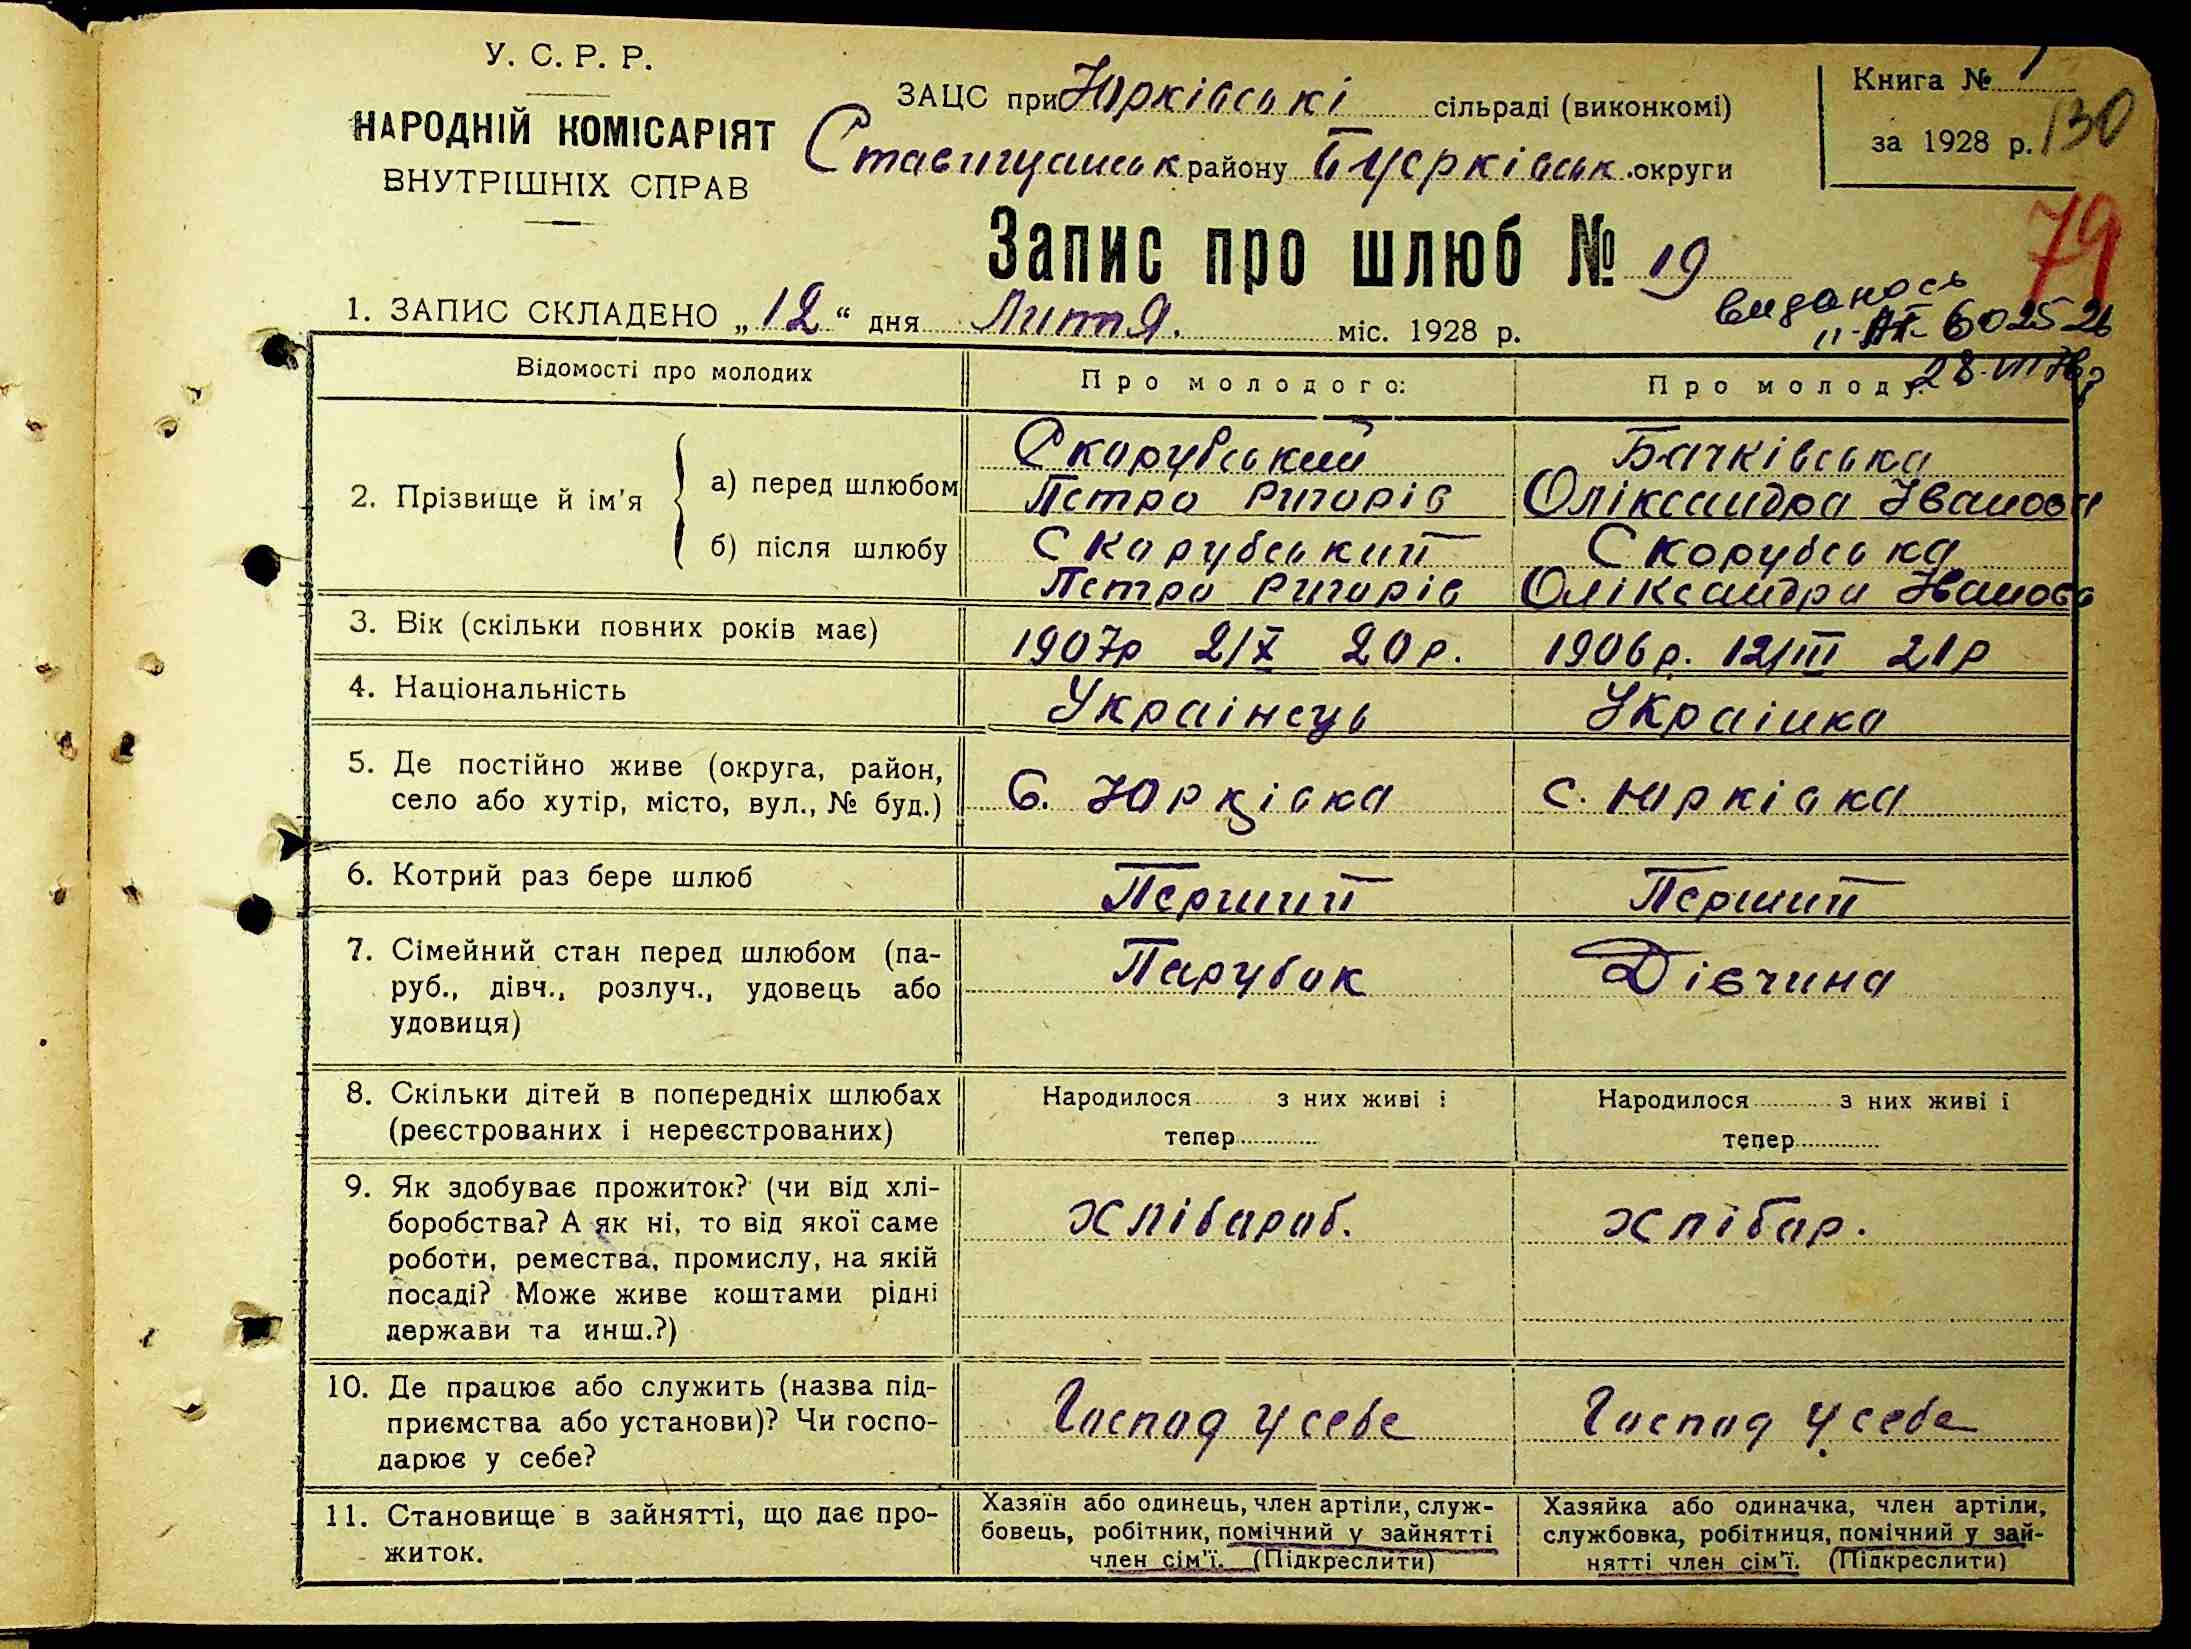 У. С. Р. Р.
НАРОДНІЙ КОМІСАРІЯТ
ВНУТРІШНІХ СПРАВ
ЗАЦС при Юрківські сільраді (виконкомі)
Ставищанськ району Бцерківськ. округи
Книга № 1
за 1928 р.
130
79
Запис про шлюб № 19
1. ЗАПИС СКЛАДЕНО „12“ дня Лиття. міс. 1928 р.
видано
602526
28.VII
Відомості про молодих
Про молодого:
Про молоду:
2. Прізвище й ім'я
а) перед шлюбом
Скарубський
Петро Ригорів
Бачківська
Оліксандра Іванови
б) після шлюбу
Скарубський
Петро Ригорів
Скорубська
Оліксандра Іванова
3. Вік (скільки повних років має)
1907р 2/X 20р.
1906р. 12/III 21р
4. Національність
Украінець
Украінка
5. Де постійно живе (округа, район,
село або хутір, місто, вул., № буд.)
С. Юрківка
С. Юрківка
6. Котрий раз бере шлюб
Перший
Перший
7. Сімейний стан перед шлюбом (па-
руб., дівч., розлуч., удовець або
удовиця)
Парубок
Дівчина
8. Скільки дітей в попередніх шлюбах
(реєстрованих і нереєстрованих)
Народилося з них живі і
тепер
Народилося з них живі і
тепер
9. Як здобуває прожиток? (чи від хлі-
боробства? А як ні, то від якої саме
роботи, ремества, промислу, на якій
посаді? Може живе коштами рідні
держави та инш.?)
Хлібароб.
Хлібар.
10. Де працює або служить (назва під-
приємства або установи)? Чи госпо-
дарює у себе?
Господ у себе
Господ у себе
11. Становище в зайнятті, що дає про-
житок.
Хазяїн або одинець, член артіли, служ-
бовець, робітник, помічний у зайнятті
член сім'ї. (Підкреслити)
Хазяйка або одиначка, член артіли,
службовка, робітниця, помічний у зай-
нятті член сім'ї. (Підкреслити)